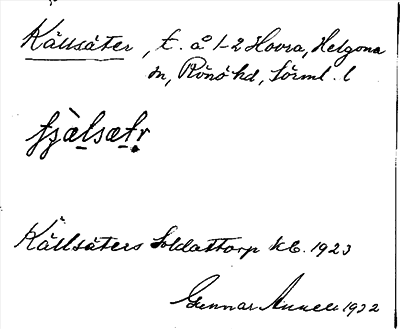 Källsäter, t. å 1-2 Hovra, Helgona
sn, Rönö hd, Sörml. l
Källsäters Soldattorp kb. 1923
Gunnar 1932